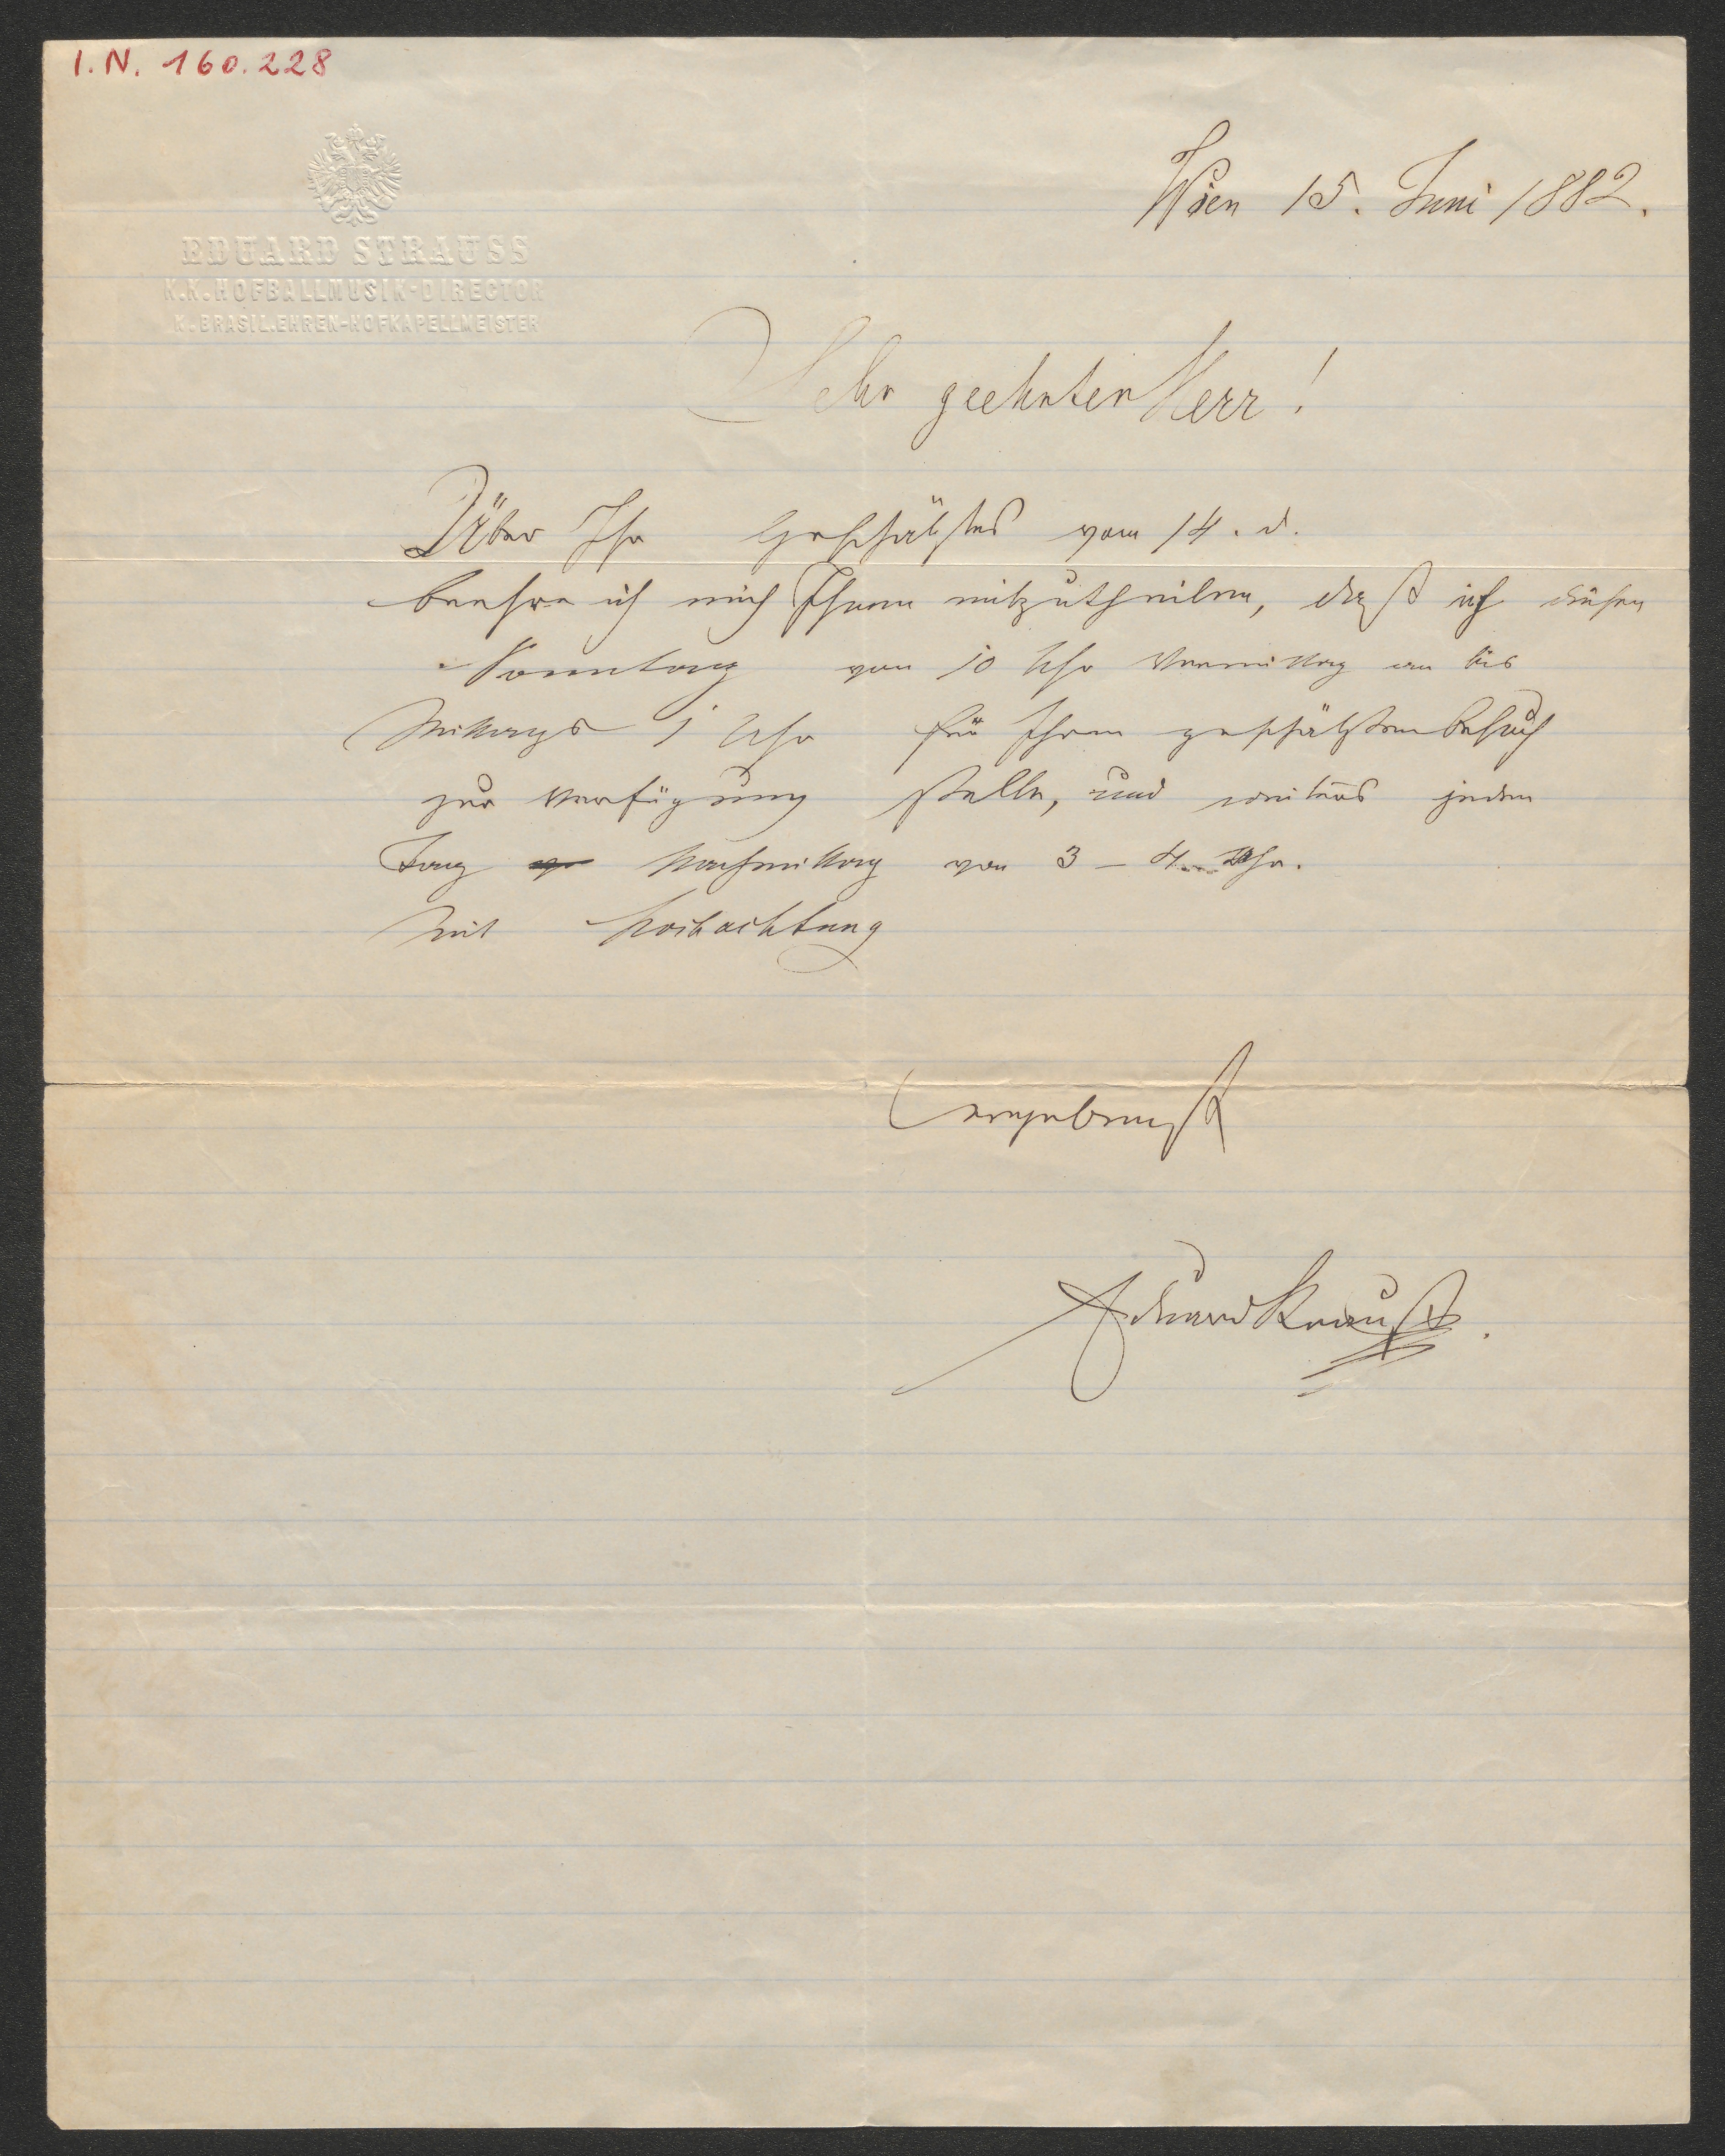 I.N. 160.228
EDUARD STRAUSS
K.K. HOFBALLMUSIK-DIRECTOR
K. BRASIL. EHREN-HOFKAPELLMEISTER
Wien 15. Juni 1882.
Sehr geehrter Herr!
Über Ihr Geschätztes vom 14. d.
beehre ich mich Ihnen mitzutheilen, daß ich diesen
Sonntag von 10 Uhr Vormittag an bis
Mittags 1 Uhr für Ihren geschätzten Besuch
zur Verfügung stelle, und weiters jeden
Tag Nachmittag von 3 – 4 Uhr.
Mit Hochachtung
ergebenst
Eduard Strauß.